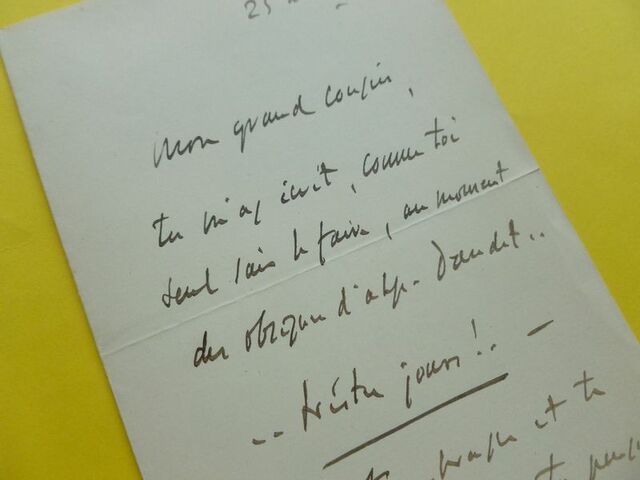 Mon grand cousin,
tu m'as écrit, comme toi
seul sais le faire, au moment
des obsèques d'alp. Daudet..
.. tristes jours!.. —
et te